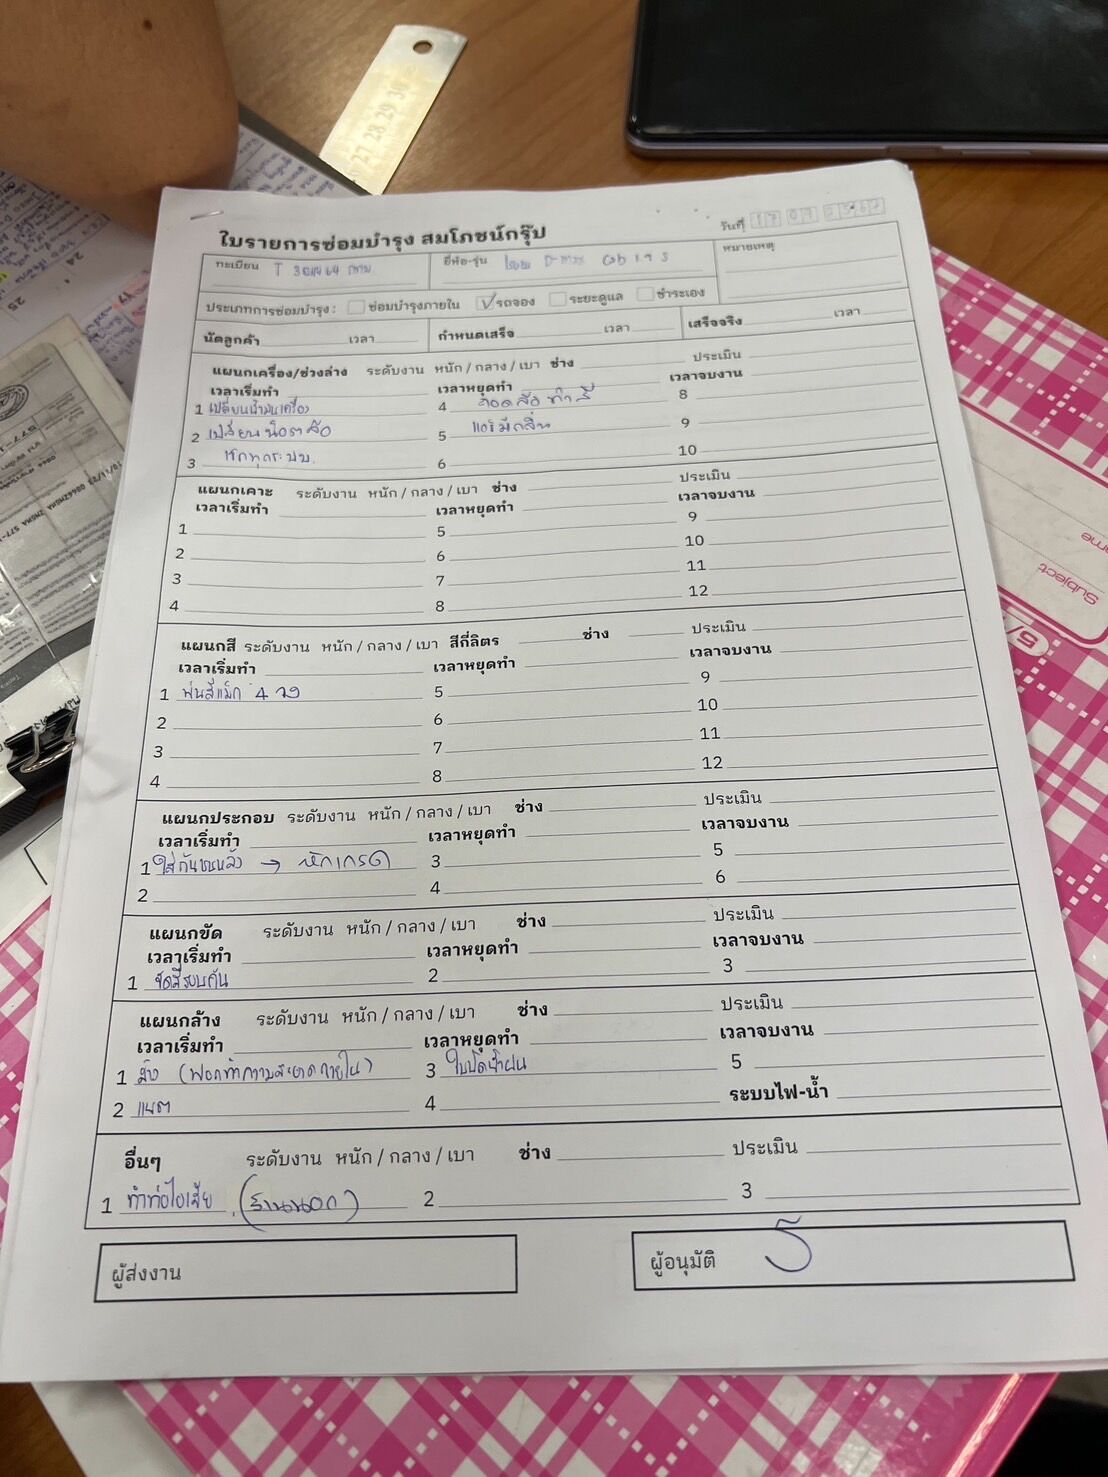 27 28 29 30
ใบรายการซ่อมบำรุง สมโภชน์กรุ๊ป
วันที่ 17 07 2567
ทะเบียน T
ยี่ห้อ-รุ่น
หมายเหตุ
ประเภทการซ่อมบำรุง : ซ่อมบำรุงภายใน ✓ รถจอง ระยะดูแล ชำระเอง
นัดลูกค้า เวลา กำหนดเสร็จ เวลา เสร็จจริง เวลา
แผนกเครื่อง/ช่วงล่าง ระดับงาน หนัก / กลาง / เบา ช่าง ประเมิน
เวลาเริ่มทำ เวลาหยุดทำ เวลาจบงาน
1 เปลี่ยนน้ำมันเครื่อง 4 ถอดล้อ ทำสี 8
2 เปลี่ยนน็อตล้อ 5 แอร์มีกลิ่น 9
3 เช็กทุกระบบ 6 10
แผนกเคาะ ระดับงาน หนัก / กลาง / เบา ช่าง ประเมิน
เวลาเริ่มทำ เวลาหยุดทำ เวลาจบงาน
1 5 9
2 6 10
3 7 11
4 8 12
แผนกสี ระดับงาน หนัก / กลาง / เบา สีกี่ลิตร ช่าง ประเมิน
เวลาเริ่มทำ เวลาหยุดทำ เวลาจบงาน
1 พ่นสีแม็ก 4 วง 5 9
2 6 10
3 7 11
4 8 12
แผนกประกอบ ระดับงาน หนัก / กลาง / เบา ช่าง ประเมิน
เวลาเริ่มทำ เวลาหยุดทำ เวลาจบงาน
1 ใส่กันชนหลัง → 3 5
2 4 6
แผนกขัด ระดับงาน หนัก / กลาง / เบา ช่าง ประเมิน
เวลาเริ่มทำ เวลาหยุดทำ เวลาจบงาน
1 ขัดสีรอบคัน 2 3
แผนกล้าง ระดับงาน หนัก / กลาง / เบา ช่าง ประเมิน
เวลาเริ่มทำ เวลาหยุดทำ เวลาจบงาน
1 ล้าง (ฟอกทำความสะอาดภายใน) 3 ใบปัดน้ำฝน 5
2 แบต 4 ระบบไฟ-น้ำ
อื่นๆ ระดับงาน หนัก / กลาง / เบา ช่าง ประเมิน
1 ทำท่อไอเสีย (ร้านนอก) 2 3
ผู้ส่งงาน ผู้อนุมัติ
Subject